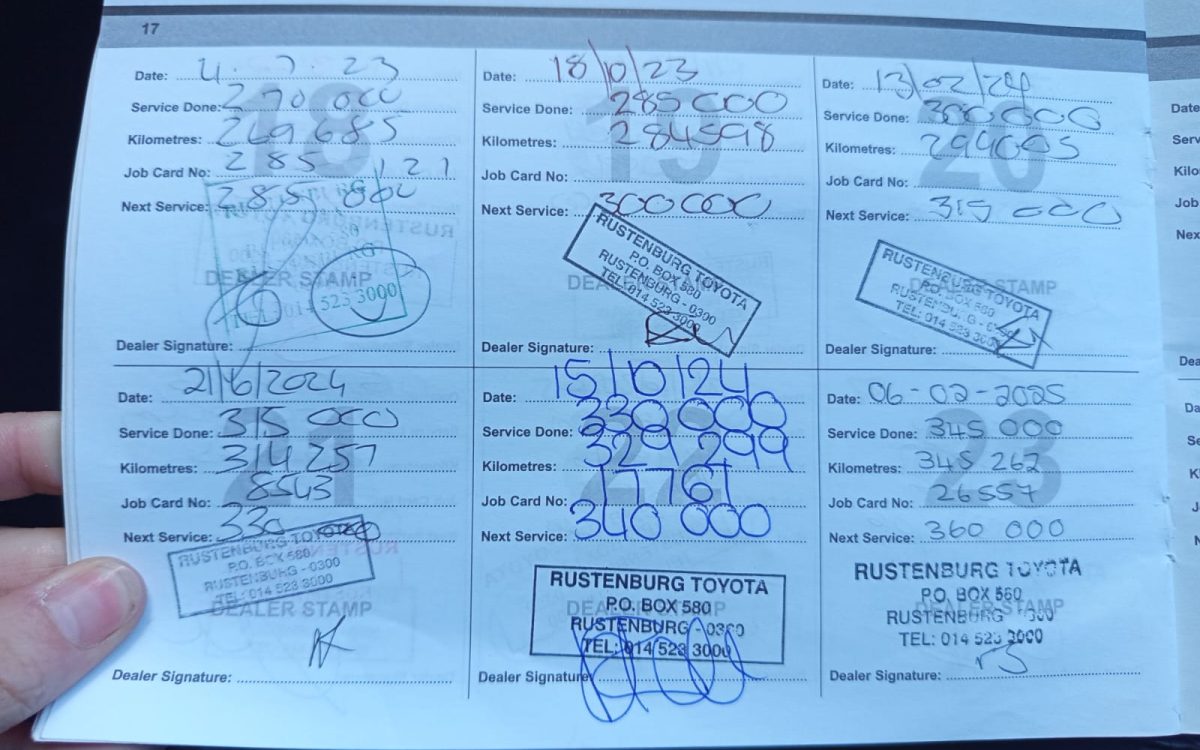 17
Date: 4.7.23
Service Done: 270 000
Kilometres: 269685
Job Card No: 285 121
Next Service: 285 000
DEALER STAMP
014 523 3000
Dealer Signature:
18
Date: 18/10/23
Service Done: 285 000
Kilometres: 284598
Job Card No:
Next Service: 300 000
RUSTENBURG TOYOTA
P.O. BOX 580
RUSTENBURG - 0300
TEL: 014 523 3000
Dealer Signature:
19
Date: 13/02/24
Service Done: 300 000
Kilometres:
Job Card No:
Next Service: 315 000
RUSTENBURG TOYOTA
P.O. BOX 580
RUSTENBURG - 0300
TEL: 014 523 3000
STAMP
Dealer Signature:
20
Date: 21/6/2024
Service Done: 315 000
Kilometres: 314 257
Job Card No: 8543
Next Service: 330 000
RUSTENBURG TOYOTA
P.O. BOX 580
RUSTENBURG - 0300
TEL: 014 523 3000
DEALER STAMP
Dealer Signature:
21
Date: 15/10/24
Service Done: 330 000
Kilometres: 329 299
Job Card No: 17761
Next Service: 340 000
RUSTENBURG TOYOTA
P.O. BOX 580
RUSTENBURG - 0300
TEL: 014 523 3000
Dealer Signature:
22
Date: 06-02-2025
Service Done: 345 000
Kilometres: 345 262
Job Card No: 26557
Next Service: 360 000
RUSTENBURG TOYOTA
P.O. BOX 580
RUSTENBURG - 0300
TEL: 014 523 3000
Dealer Signature:
23